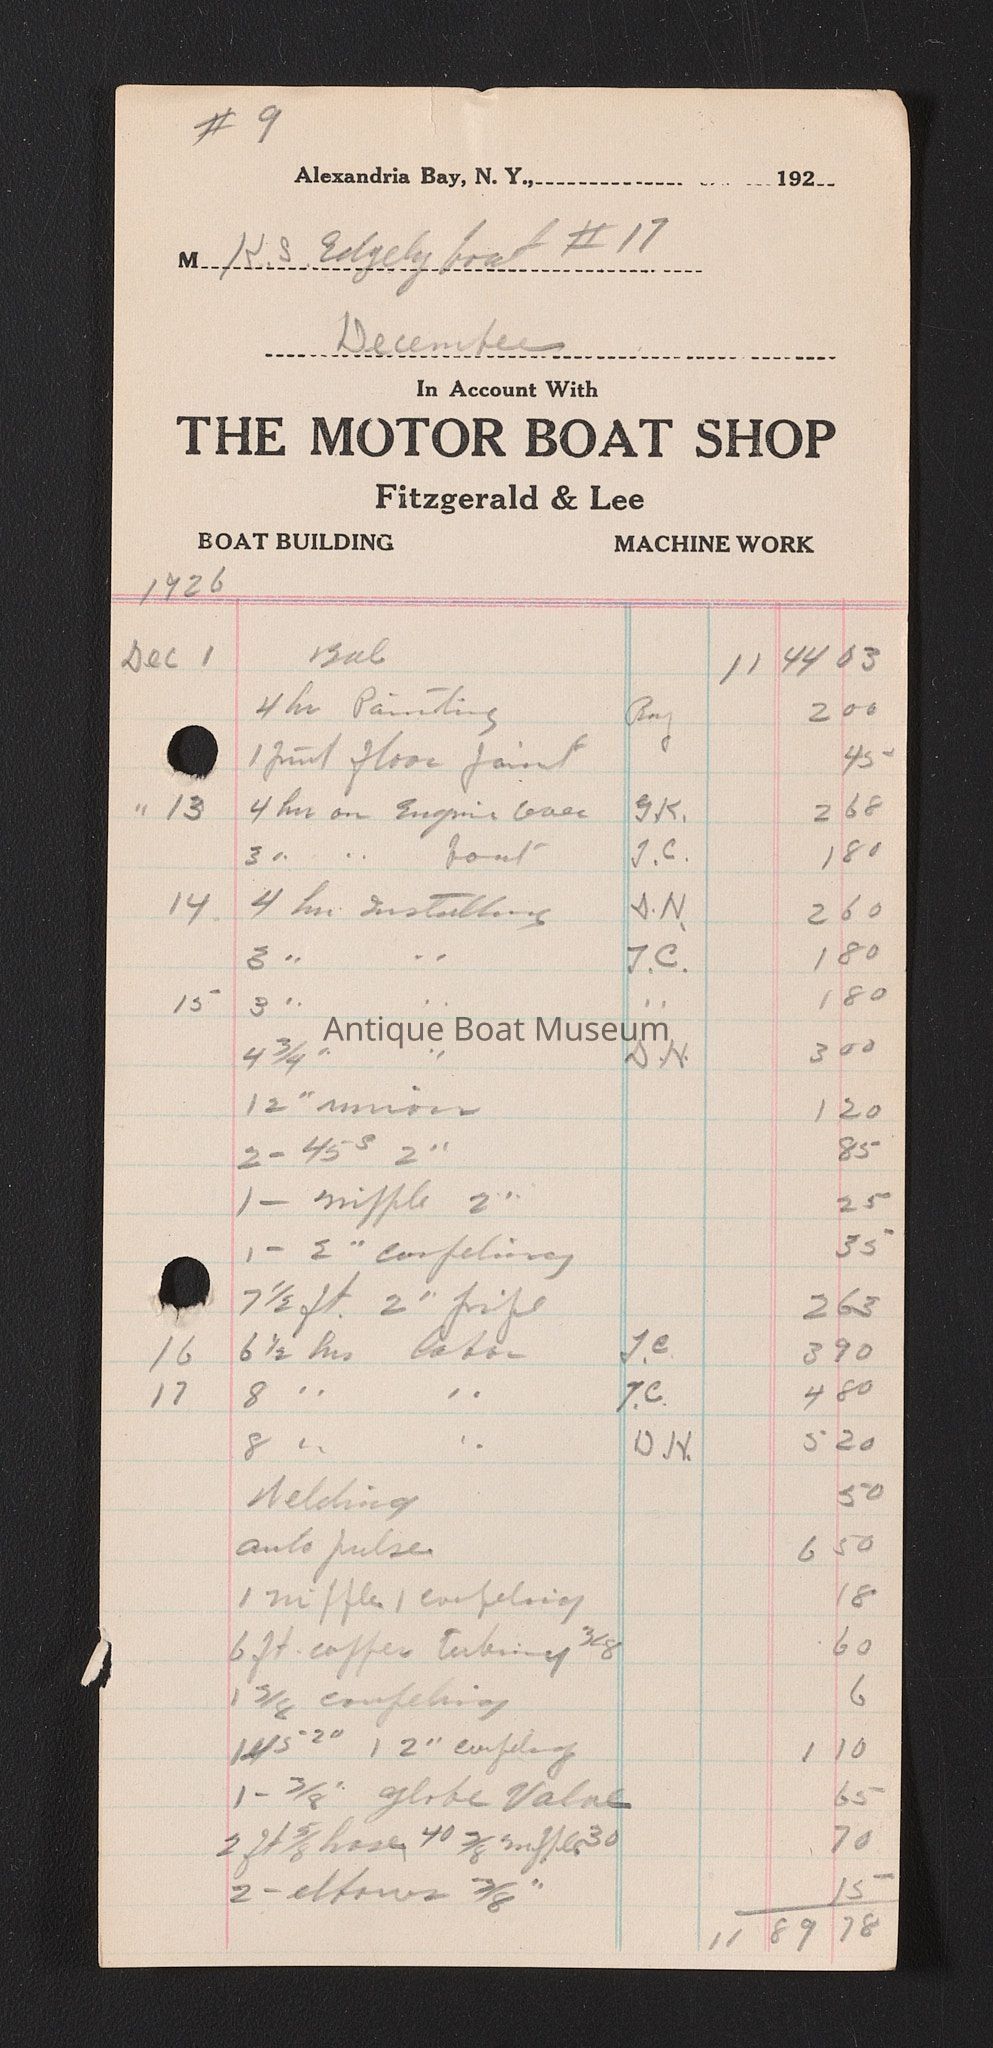 # 9
Alexandria Bay, N. Y., 192
M K.S. Edgely boat # 17
December
In Account With
THE MOTOR BOAT SHOP
Fitzgerald & Lee
BOAT BUILDING MACHINE WORK
1926
Dec 1 Bal 11 44 03
4 hr Painting Ray 2 00
1 pint floor paint 45
" 13 4 hrs on Engine Cover G.K. 2 68
3 " " boat T.C. 1 80
14 4 hrs Installing D.N. 2 60
3 " " T.C. 1 80
15 3 " " " 1 80
Antique Boat Museum
4 3/4 " " D.N. 3 00
1 2" union 1 20
2 - 45s 2" 85
1 - nipple 2" 25
1 - 2" coupeling 35
7 1/2 ft. 2" pipe 2 63
16 6 1/2 hrs labor T.C. 3 90
17 8 " " T.C. 4 80
8 " " D.N. 5 20
Welding 50
auto pulse 6 50
1 nipple 1 coupeling 18
6 ft. copper tubing 3/8 60
1 3/8 coupeling 6
1 45 2" 1 2" coupling 1 10
1 - 3/8" globe Valve 65
2 ft 5/8 hose 40 3/8 nipple 30 70
2 - elbows 3/8" 15
11 89 78